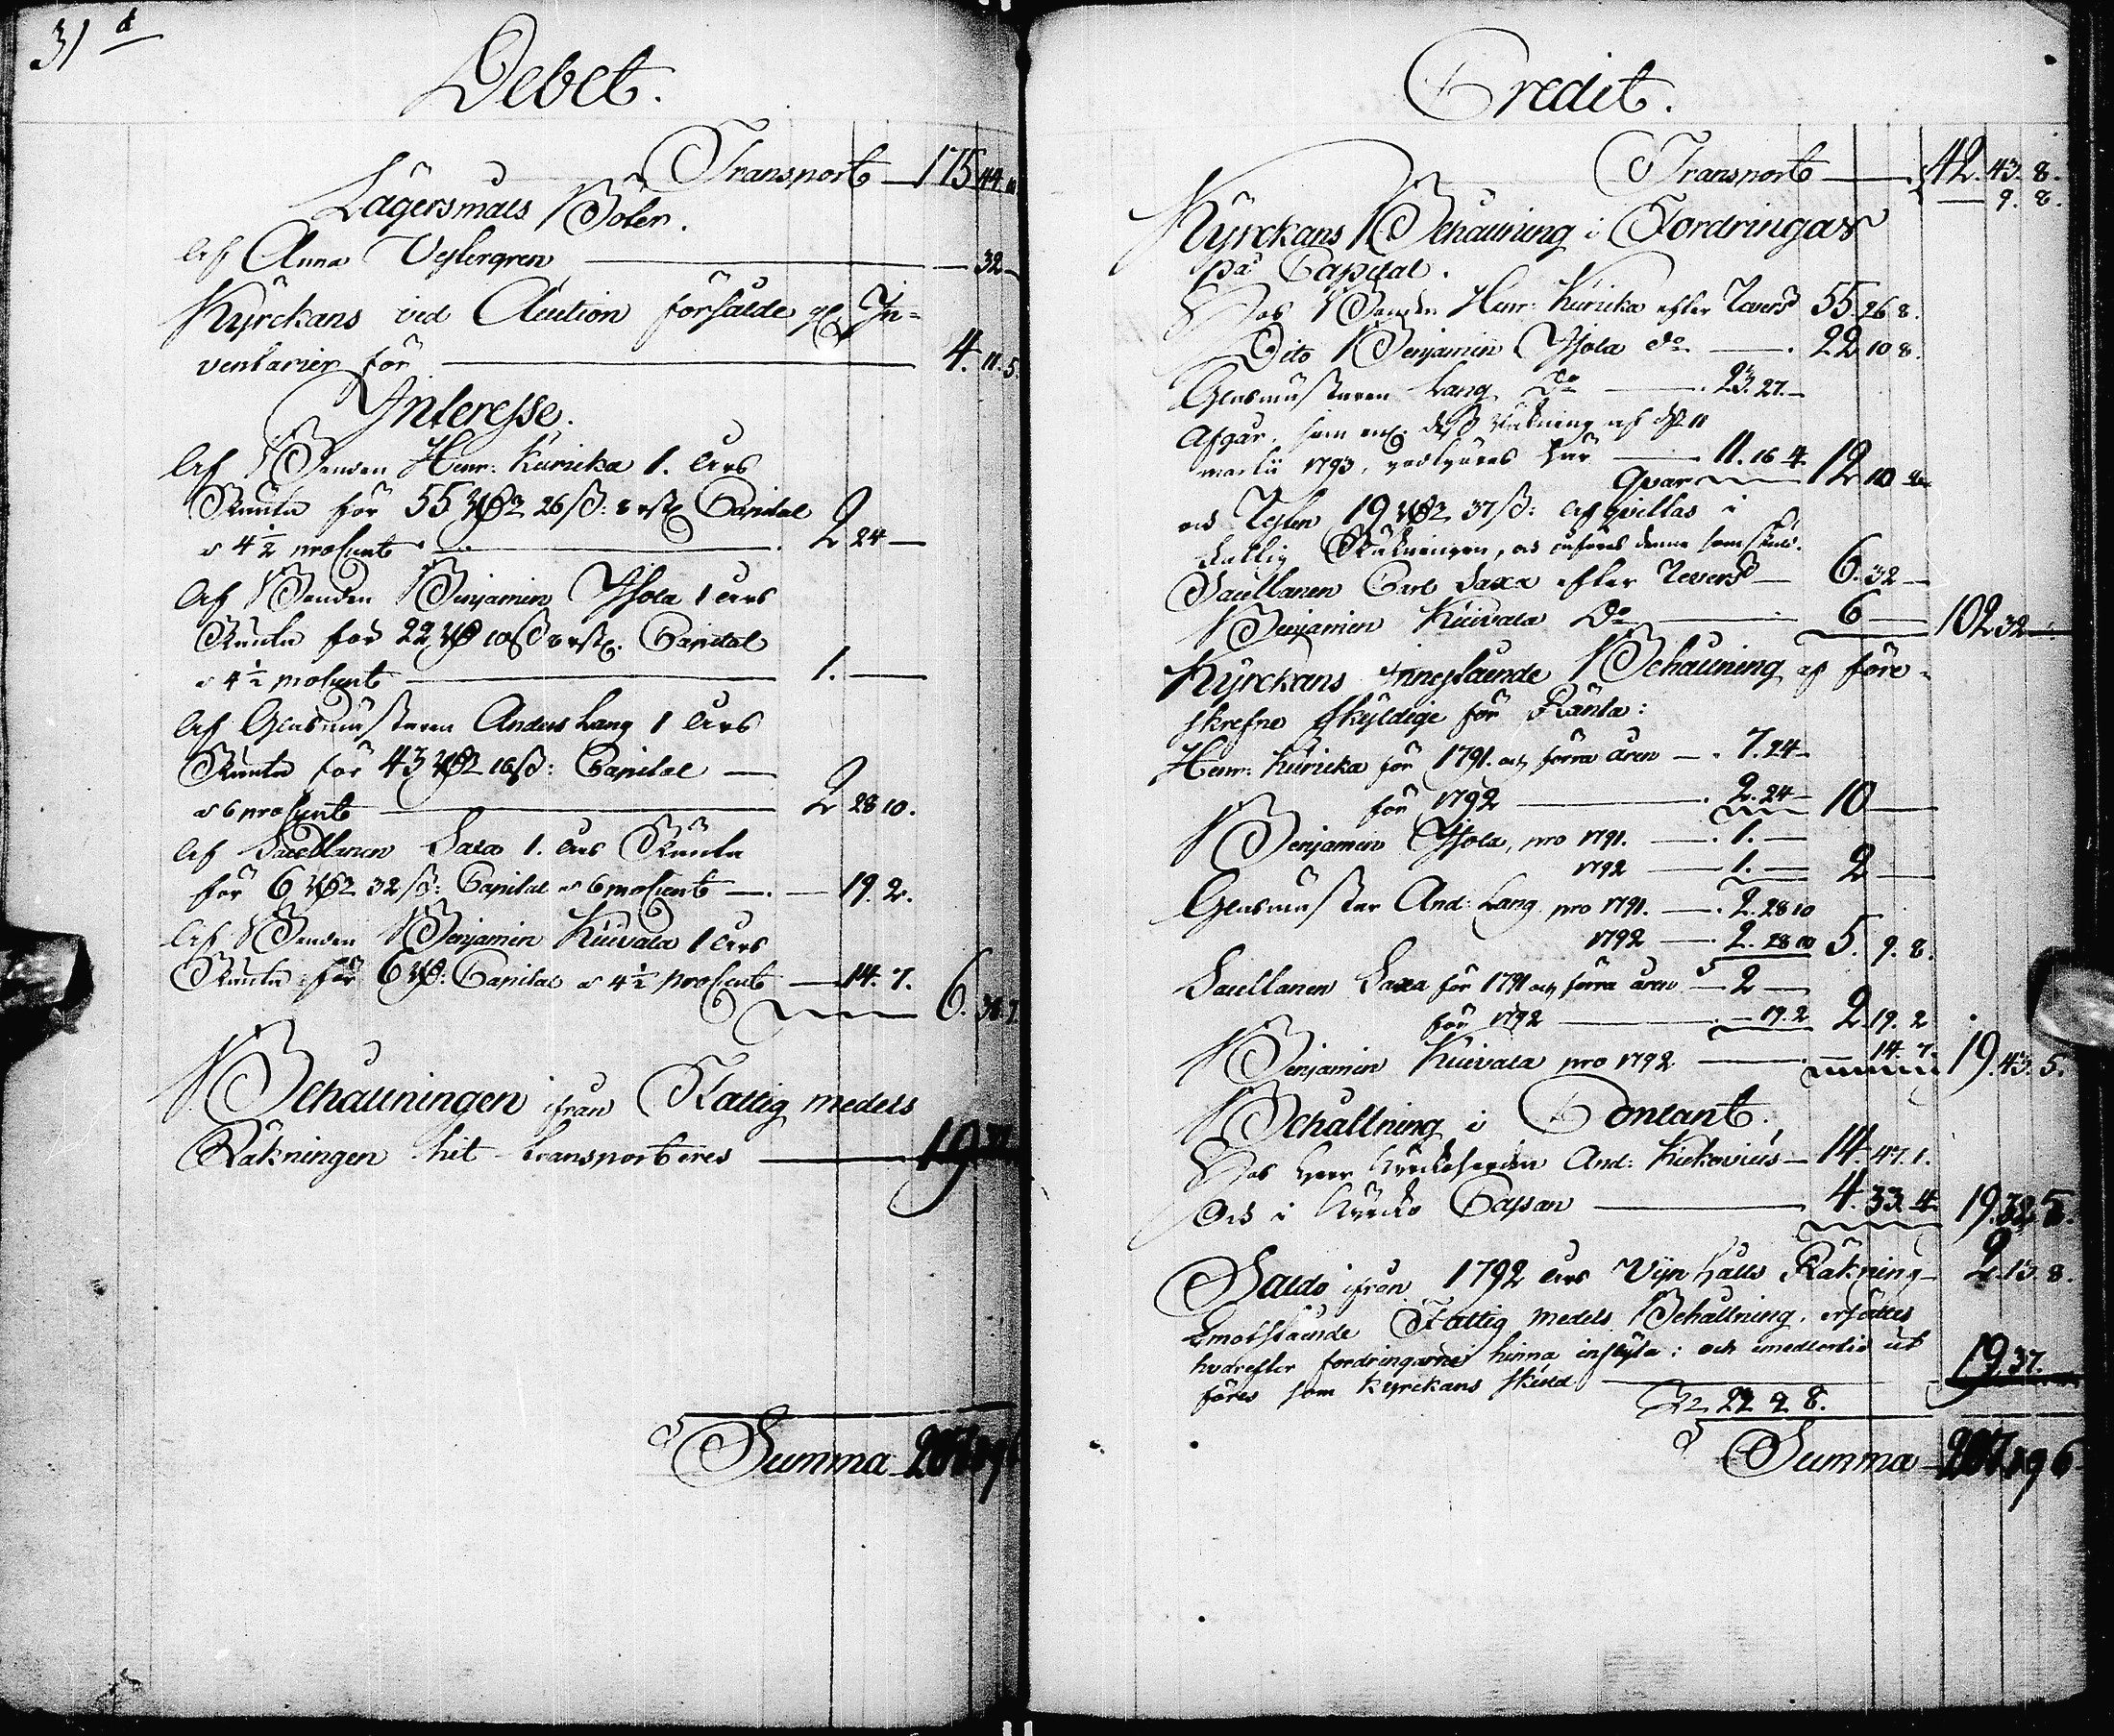 31
Debet.
Transport — 175 44
Lägersmåls Böter.
Af Anna Vestergren — 32 —
Kyrckans vid Auction försålde In=
ventarier för — 4. 11. 5.
Interesse.
Af Bonden Henr: Kuricka 1. års
Ränta för 55 26 ß: 8 Capital
a 4 1/2 procent — 2 24 —
Af Bonden Benjamin Ysola 1 års
Ränta för 22 10 ß 8 Capital
a 4 1/2 procent — 1. —
Af Glasmästaren Anders Lang 1 års
Ränta för 43 Capital —
a 6 procent — 2 28 10.
Af Sacellanen Saxa 1. års Ränta
för 6 32 ß: Capital a 6 procent — 19. 2.
Af Bonden Benjamin Kuivala 1 års
Ränta för 6 Capital a 4 1/2 procent — 14. 7.
6.
Behållningen ifrån Fattig medels
Räkningen hit transporteres — 19
Summa
Credit.
Transport — 42. 43. 8.
— 9. 8.
Kyrckans Behållning i Fordringar
på Capital.
Hos Bonden Henr: Kuricka efter Revers 55 26 8.
Dito Benjamin Ysola do — 22 10 8.
Glasmästaren Lang do — 23. 27. —
Afgår, som Räkning af d. 11
martii 1793, godtgöres här — 11. 16 4.
Qvar — 12 10 8
och Resten 19 37 ß: afqvittas i
Fattig Räkningen, och införes denna som skuld.
Sacellanen Carl Saxa efter Revers — 6. 32 —
Benjamin Kuivala do — 6 — 102 32 —
Kyrckans innestående Behållning af före-
skrefne skyldige för Ränta:
Henr: Kuricka för 1791. och förra åren — 7. 24 —
för 1792 — 2. 24 — 10 —
Benjamin Ysola, pro 1791. — 1. —
1792 — 1. — 2 —
Glasmästar And: Lang pro 1791. — 2. 28 10
1792 — 2. 28 10 5. 9. 8.
Sacellanen Saxa för 1791 och förra åren — 2 —
för 1792 — 19. 2 2. 19. 2
Benjamin Kuivala pro 1792 — 14. 7. 19. 43. 5.
Behållning i Contant.
Hos Herr Kyrckoherden And: — 14. 47. 1.
Och i Kyrcko Cassan — 4. 33. 4 19. 32 5.
Saldo ifrån 1792 års Vijn hålls Räkning — 2. 13. 8.
Emotstående Fattig medels Behållning, ersättes
hvarefter fordringarne hinna inflyta: och imedlertid ut
föres som Kyrckans skuld — 19. 37.
22 9 8.
Summa — 207. 19 6